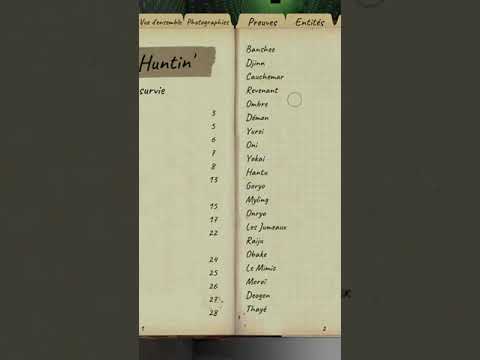 Vue d'ensemble
Photographies
Preuves
Entités
Huntin'
survie
3
5
6
7
8
13
15
17
22
24
25
26
27
28
1
Banshee
Djinn
Cauchemar
Revenant
Ombre
Démon
Yurei
Oni
Yokai
Hantu
Goryo
Myling
Onryo
Les Jumeaux
Raiju
Obake
Le Mimic
Moroï
Deogen
Thayé
2